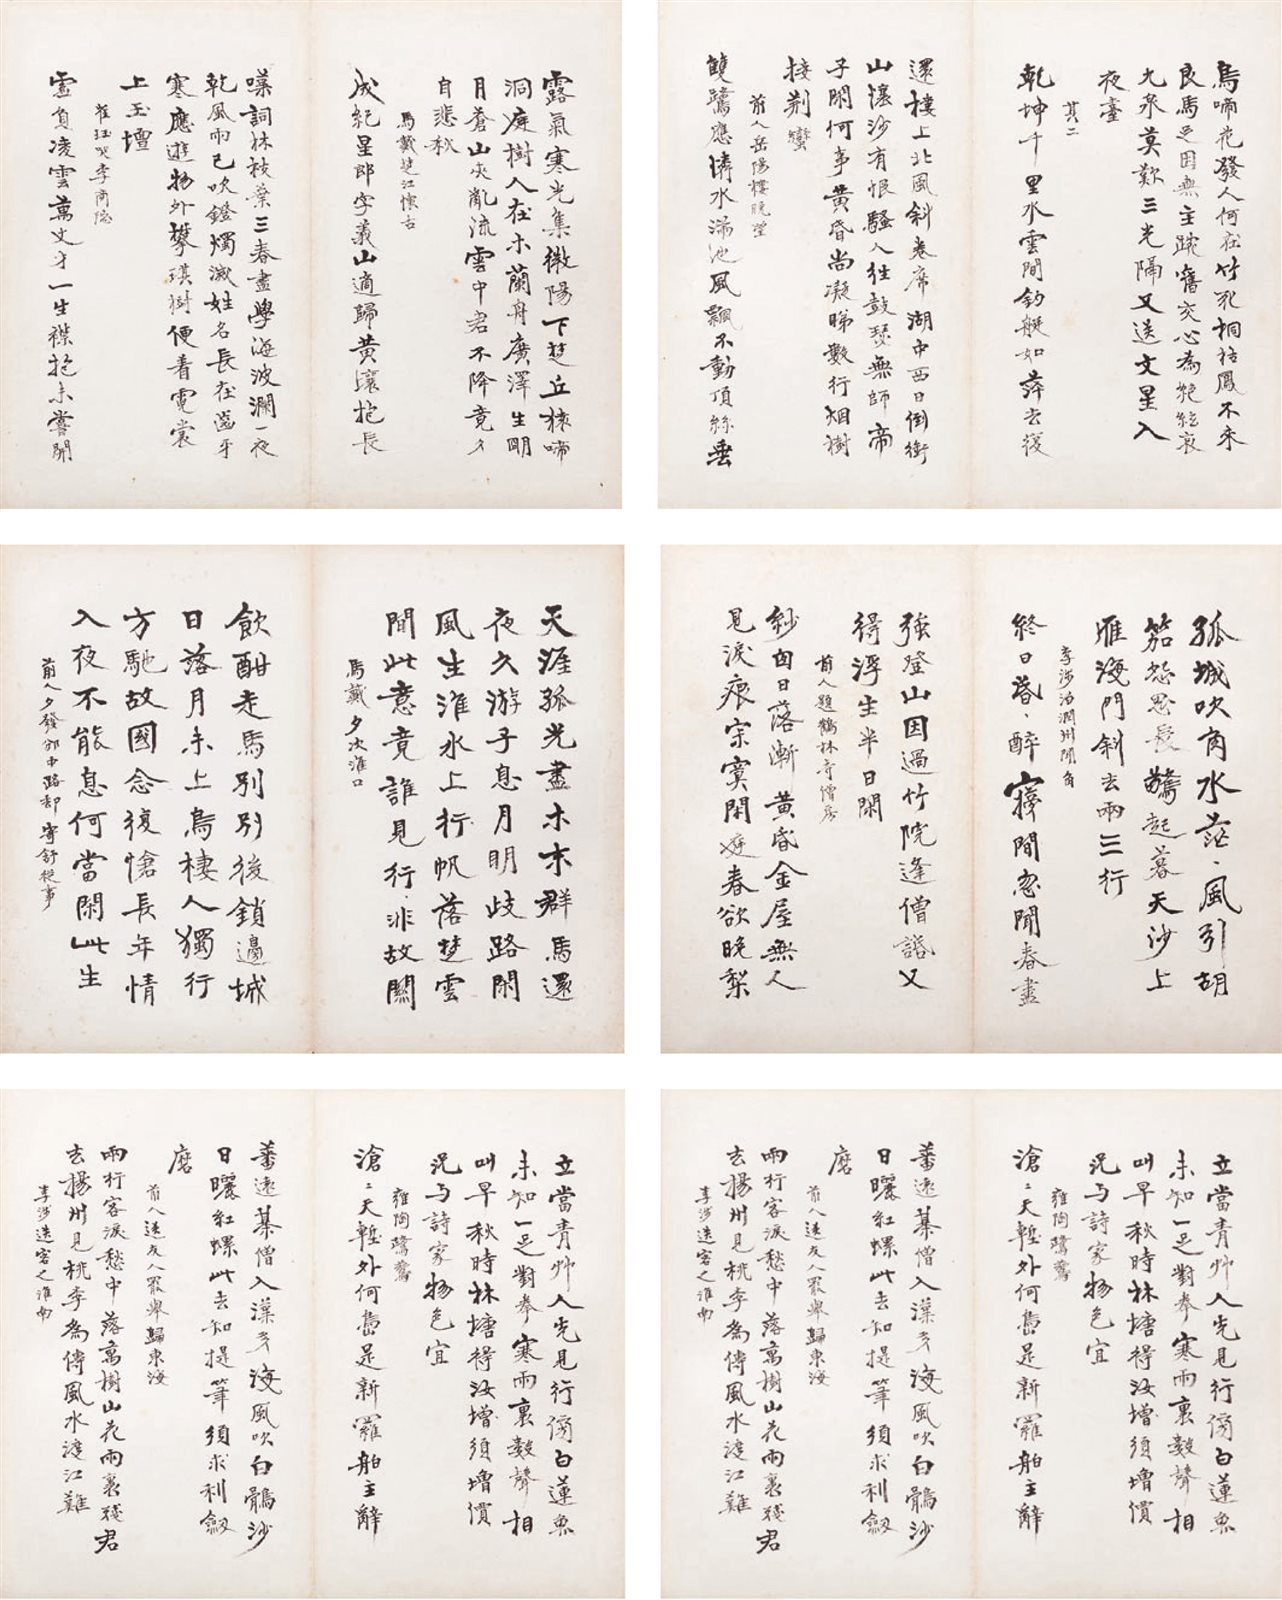 露氣寒光集微陽下楚丘猿啼
洞庭樹人在木蘭舟廣澤生明
月蒼山夾亂流雲中君不降竟夕
自悲秋
馬戴楚江懷古
成紀星郎字義山適歸黃壤抱長
嘆詞林枝葉三春盡學海波瀾一夜
乾風雨已吹燈燭滅姓名長在齒牙
寒應遊物外攀琪樹便着霓裳
上玉壇
崔珏哭李商隱
虛負凌雲萬丈才一生襟抱未嘗開
烏啼花發人何在竹死桐枯鳳不來
良馬足因無主踠舊交心為絕絃哀
九泉莫歎三光隔又送文星入
夜臺
其二
乾坤千里水雲間釣艇如萍去復
還樓上北風斜卷席湖中西日倒銜
山懷沙有恨騷人往鼓瑟無師帝
子閑何事黃昏尚凝睇數行烟樹
接荆蠻
前人岳陽樓晚望
雙鷺應憐水滿池風飄不動頂絲垂
天涯孤光盡木末群鳥還
夜久游子息月明歧路閑
風生淮水上行帆落楚雲
間此意竟誰見行、非故關
馬戴夕次淮口
飲酣走馬別別後鎖邊城
日落月未上烏棲人獨行
方馳故國念復愴長年情
入夜不能息何當閑此生
前人夕發邠中路却寄舒從事
孤城吹角水茫、風引胡
笳怨思長驚起暮天沙上
雁海門斜去兩三行
李涉泊潤州聞角
終日昏、醉夢間忽聞春盡
強登山因過竹院逢僧話又
得浮生半日閑
前人題鶴林寺僧房
紗窗日落漸黃昏金屋無人
見淚痕寂寞閑庭春欲晚梨
立當青草人先見行傍白蓮魚
未知一足對拳寒雨裏數聲相
叫早秋時林塘得汝增須增價
況与詩家物色宜
雍陶鷺鷥
滄〻天塹外何島是新羅舶主辭
番遠棊僧入漢多海風吹白鶴沙
日曬紅螺此去知提筆須求利劔
磨
前人送友人罷舉歸東海
兩行客淚愁中落萬樹山花雨裏殘君
去揚州見桃李為傳風水渡江難
李涉送客之淮南
立當青草人先見行傍白蓮魚
未知一足對拳寒雨裏數聲相
叫早秋時林塘得汝增須增價
況与詩家物色宜
雍陶鷺鷥
滄〻天塹外何島是新羅舶主辭
番遠棊僧入漢多海風吹白鶴沙
日曬紅螺此去知提筆須求利劔
磨
前人送友人罷舉歸東海
兩行客淚愁中落萬樹山花雨裏殘君
去揚州見桃李為傳風水渡江難
李涉送客之淮南